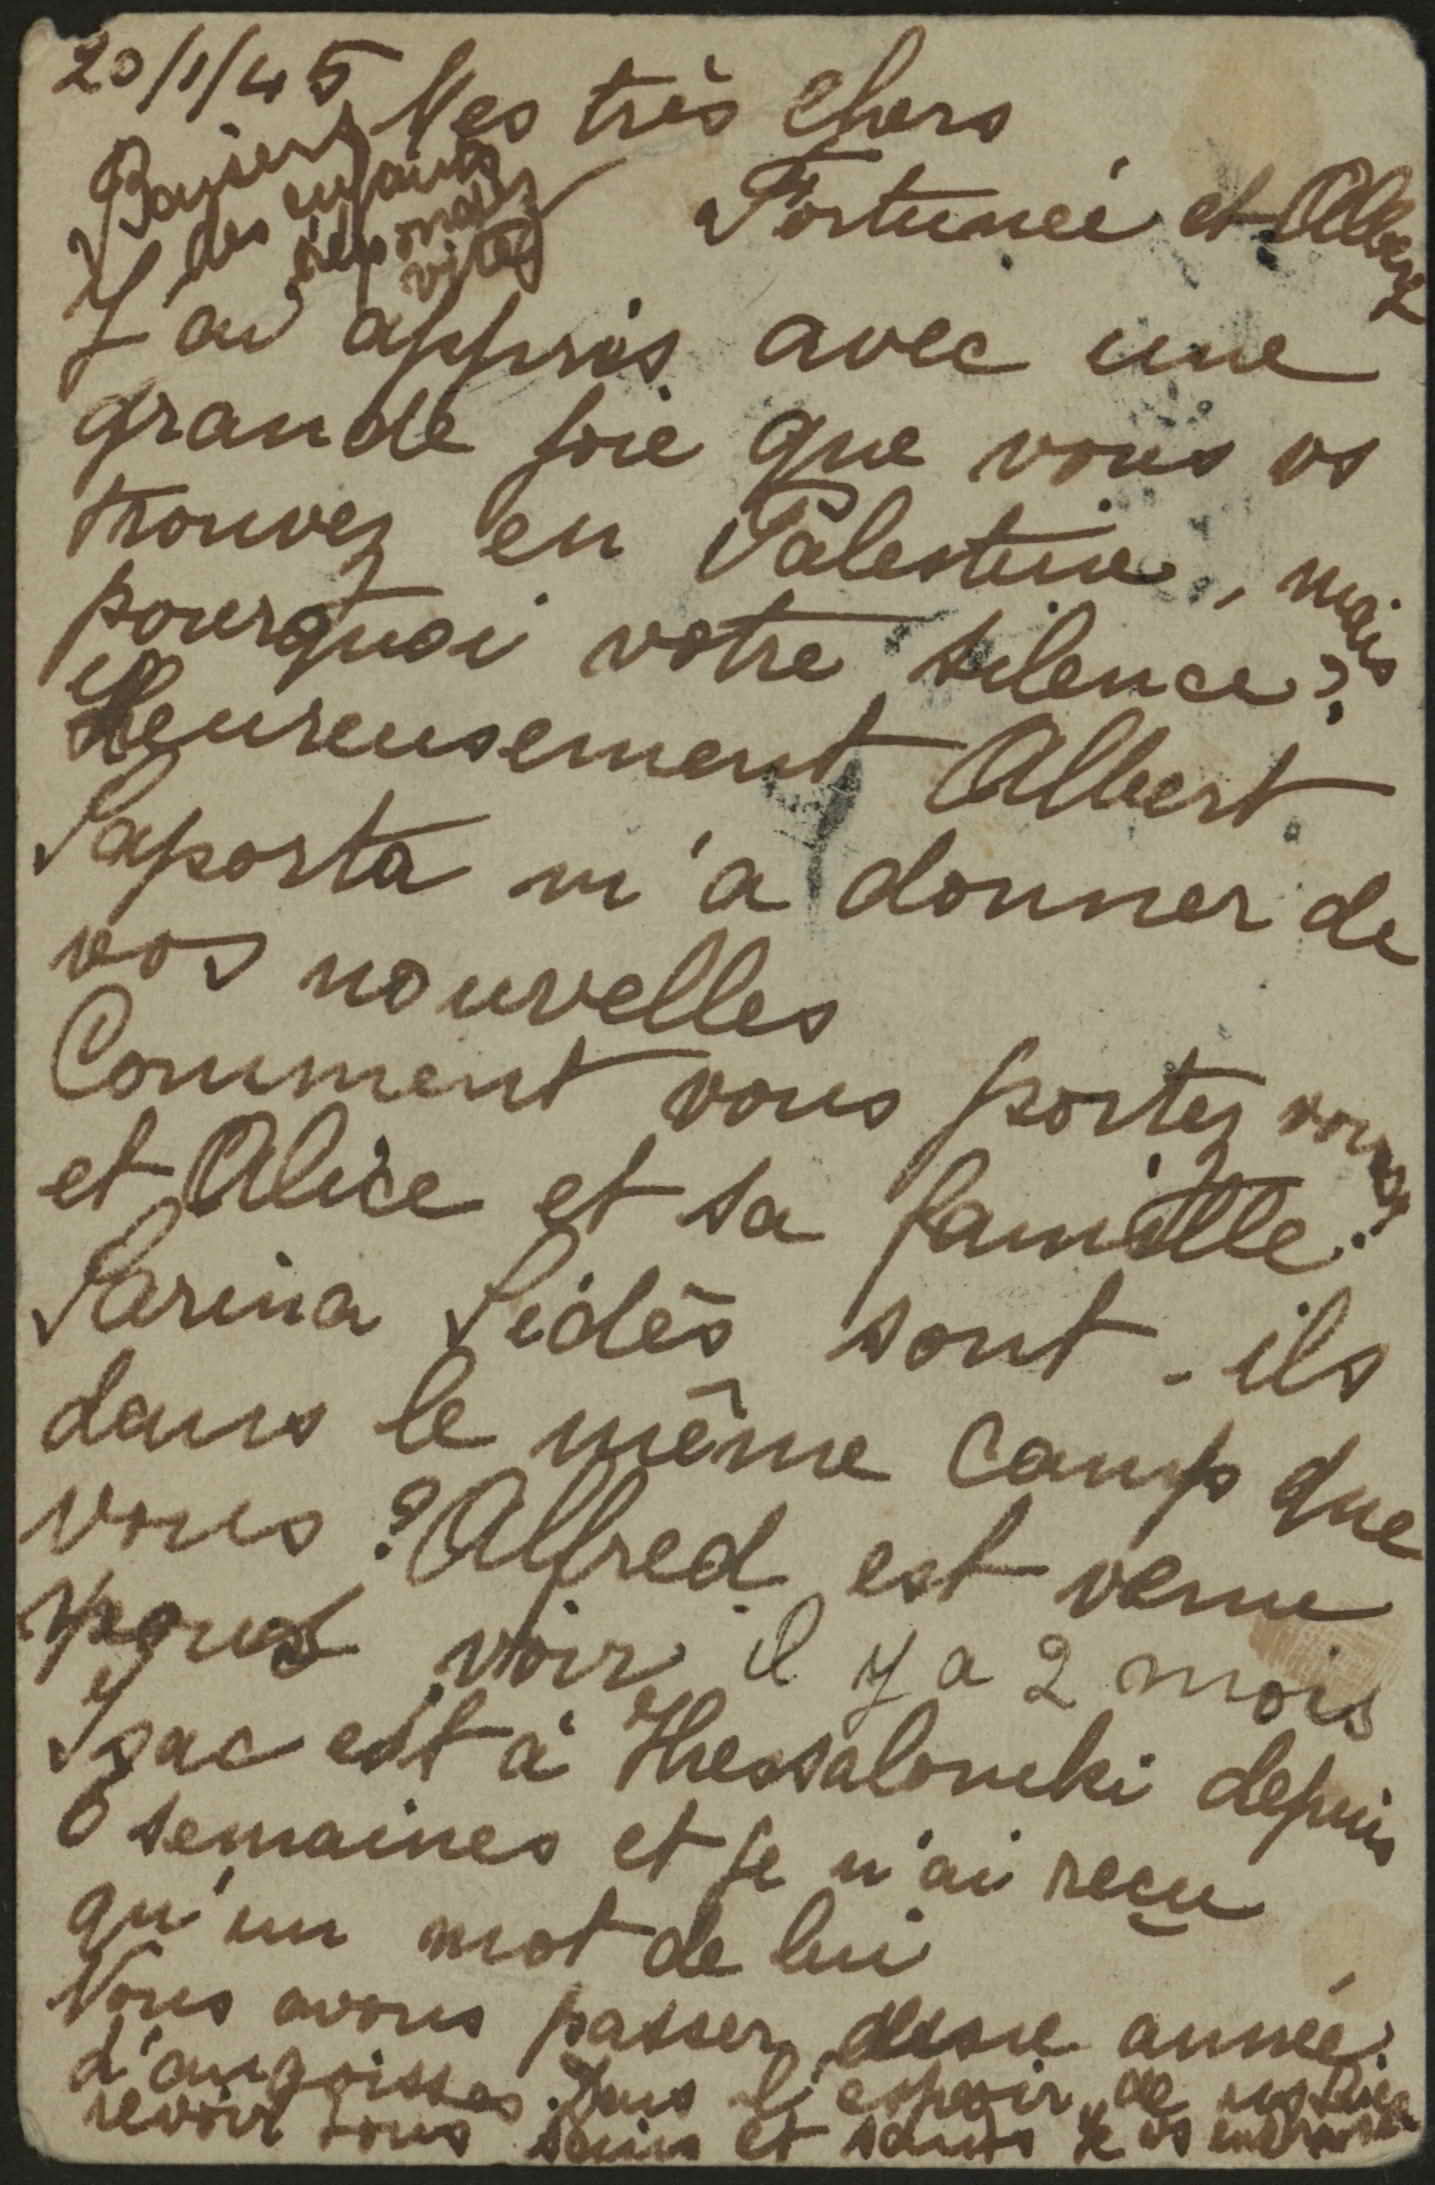 20/1/45
Mes très chers
Fortunée et Albert
Baisers
des enfants
réponse
vite
J'ai appris avec une
grande joie que vous vs
trouvez en Palestine, mais
pourquoi votre silence?
Heureusement Albert
Saporta m'a donner de
vos nouvelles
Comment vous portez vous
et Alice et sa famille?
Sarina Sidès sont-ils
dans le même camp que
vous? Alfred est venu
nous voir il y a 2 mois
Isac est à Thessaloniki depuis
6 semaines et je n'ai reçu
qu'un mot de lui
Nous avons passer année
d'angoisses. Dans l'espoir de
revoir tous sains et saufs je vs embrasse